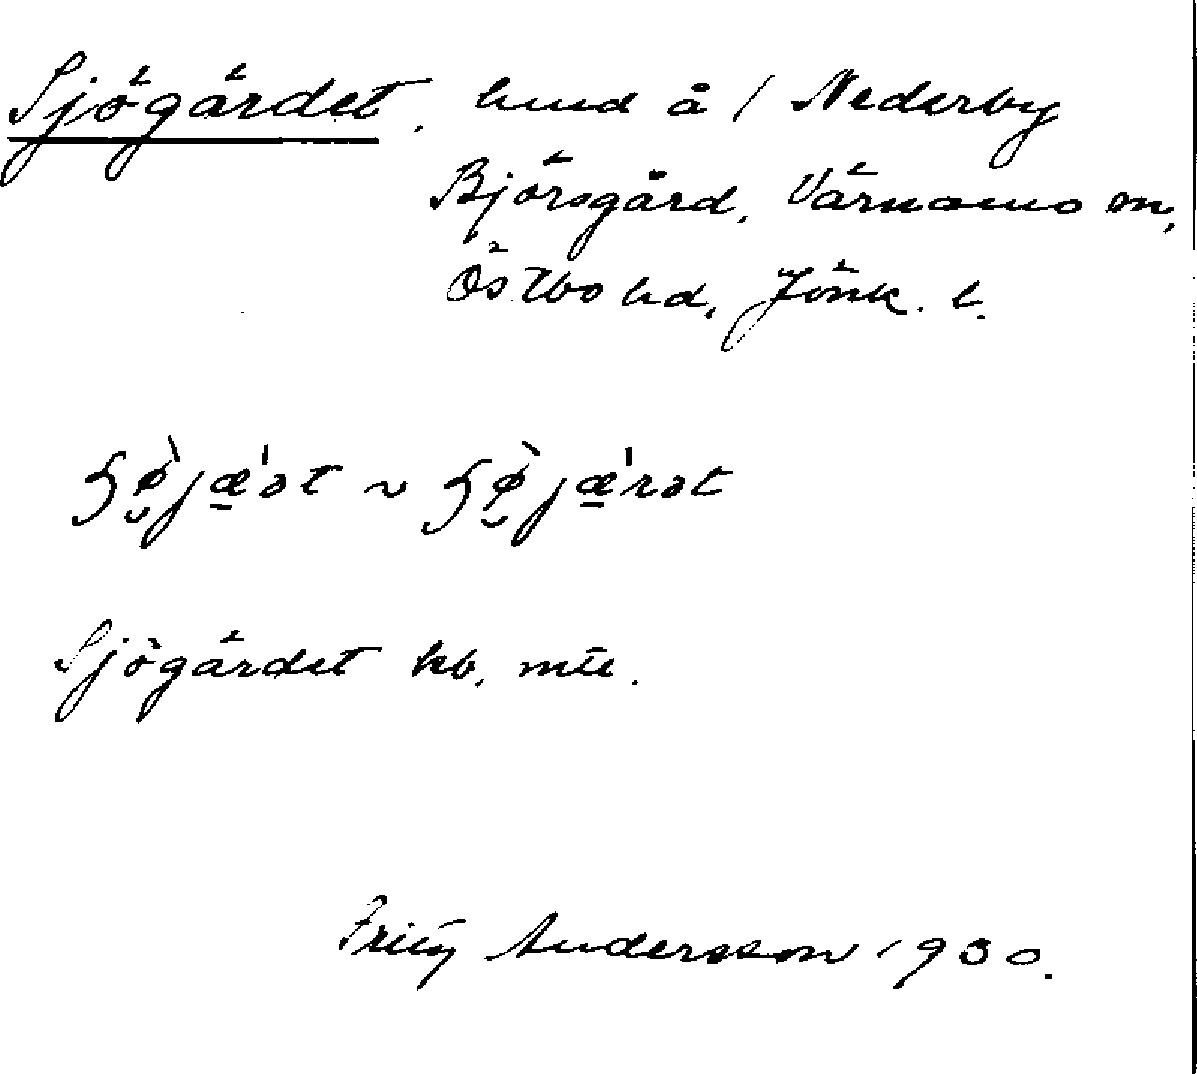 Sjögärdet. hmd å 1 Nederby
Björsgård, Värnamo sn,
Östbo hd, Jönk. l.
ɧø̀jæ'ət ~ ɧø̀jæ'rət
Sjögärdet kb. mtl.
Fritz Andersson 1930.